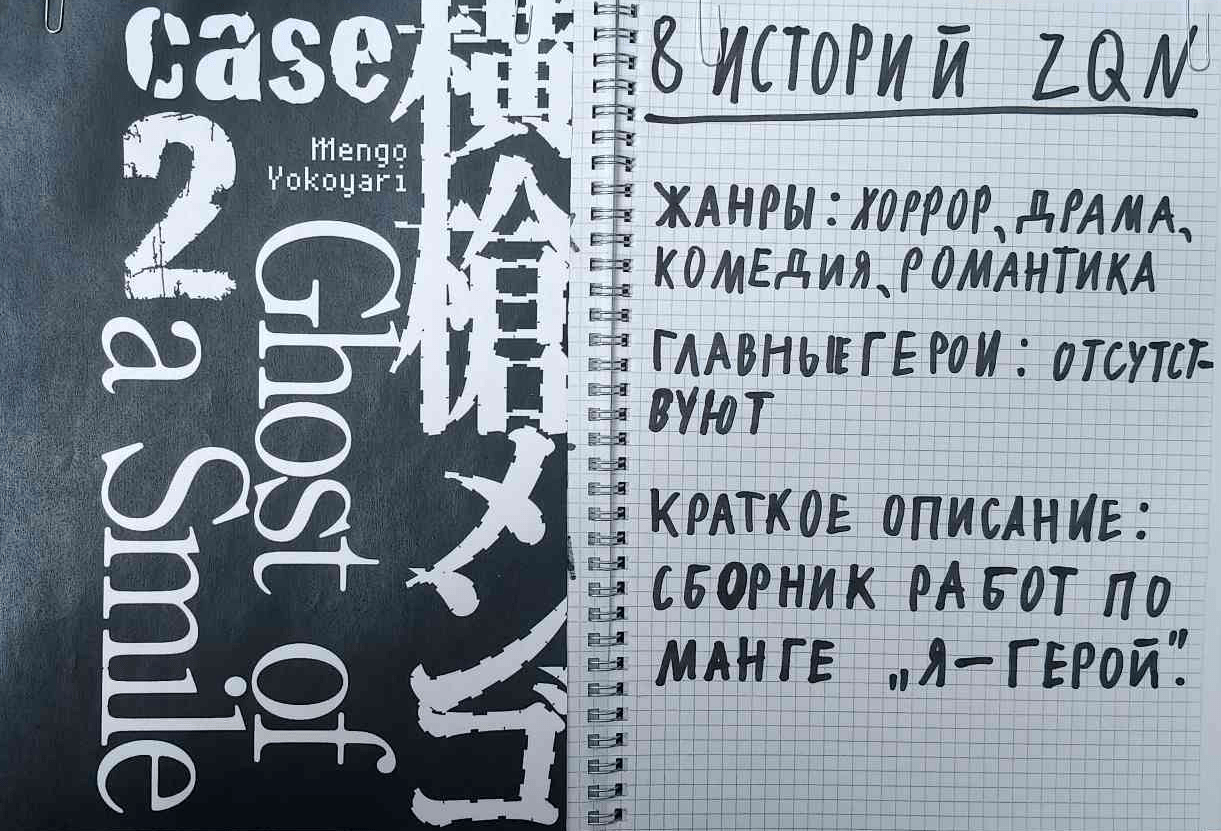 case
2
Mengo
Yokoyari
横槍メンゴ
Ghost of
a Smile
8 ИСТОРИЙ ZQN
ЖАНРЫ: ХОРРОР, ДРАМА,
КОМЕДИЯ, РОМАНТИКА
ГЛАВНЫЕ ГЕРОИ: ОТСУТСТ-
ВУЮТ
КРАТКОЕ ОПИСАНИЕ:
СБОРНИК РАБОТ ПО
МАНГЕ „Я — ГЕРОЙ".